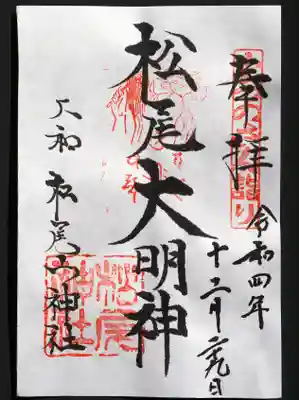 奉拝
令和四年
十二月二十九日
松尾大明神
大和 松尾山神社